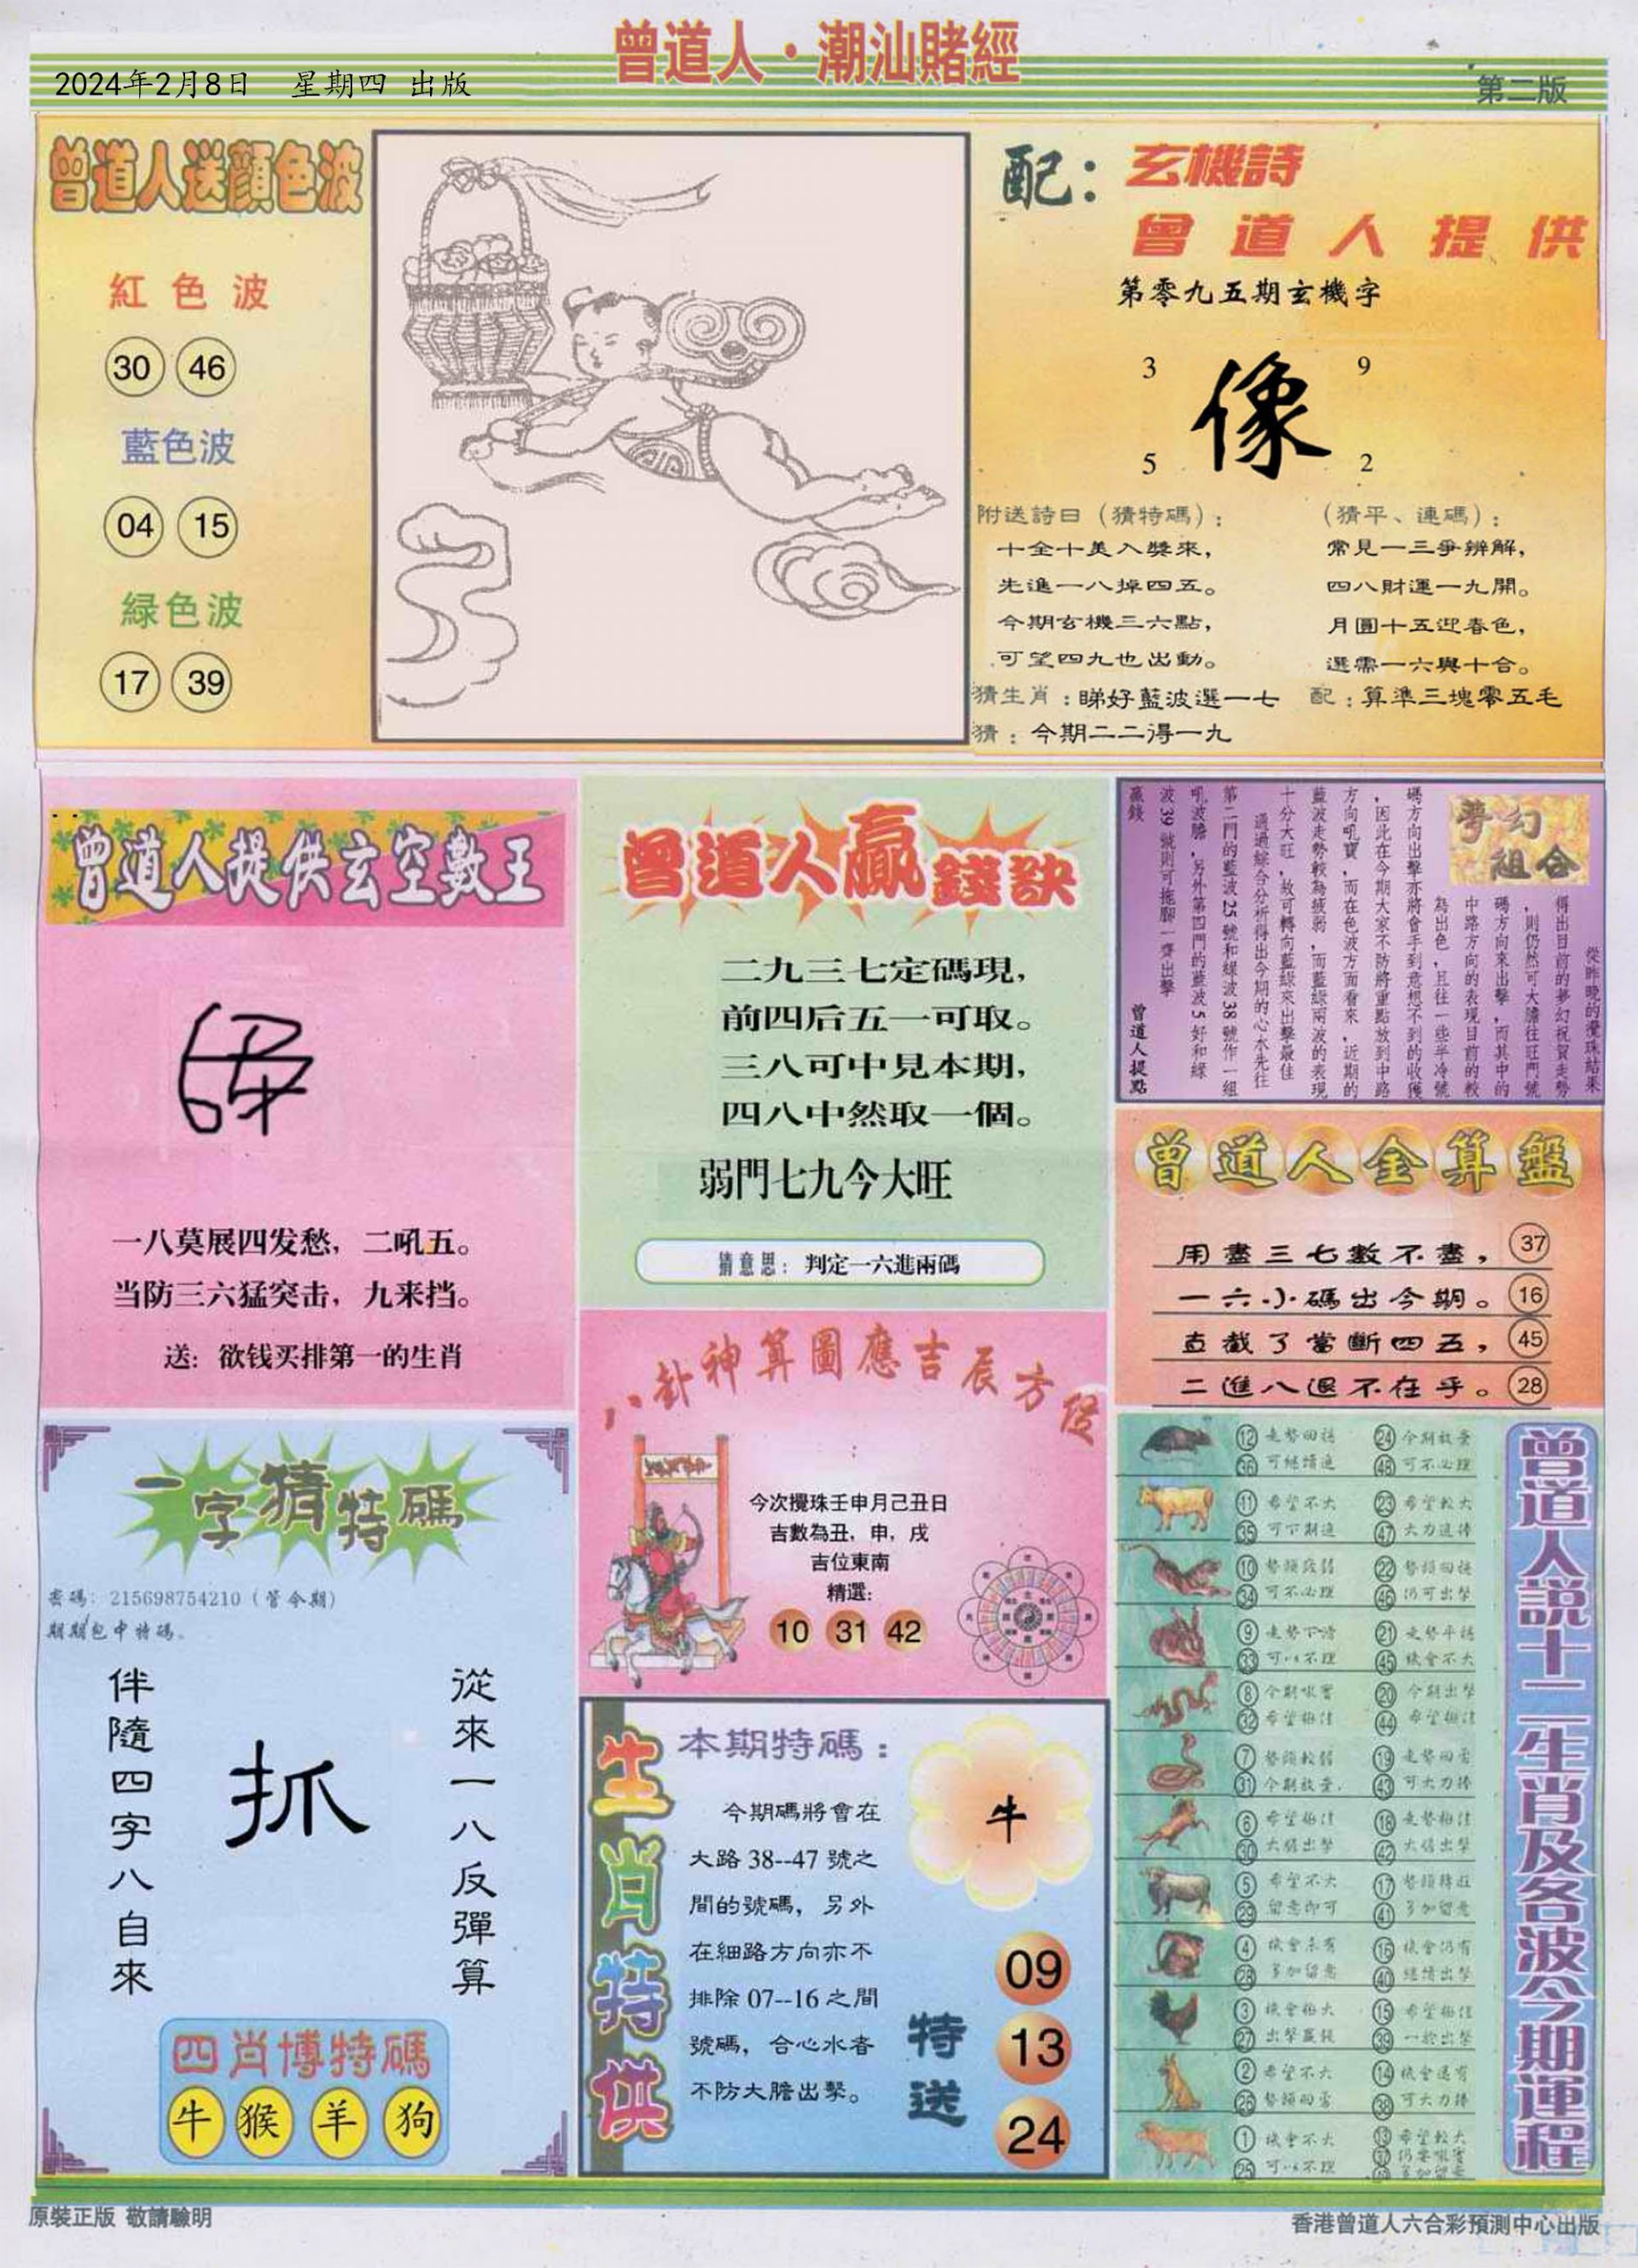 曾道人·潮汕賭經
2024年2月8日 星期四 出版
第二版
曾道人送顏色波
紅色波
30 46
藍色波
04 15
緑色波
17 39
配：玄機詩
曾道人提供
第零九五期玄機字
3 9
像
5 2
附送詩日（猜特碼）：
十全十美入獎來，
先進一八掉四五。
今期玄機三六點，
可望四九也出動。
（猜平、連碼）：
常見一三爭辨解，
四八財運一九開。
月圓十五迎春色，
選需一六與十合。
猜生肖：睇好藍波選一七
配：算準三塊零五毛
猜：今期二二得一九
曾道人提供玄空數王
一八莫展四发愁，二吼五。
当防三六猛突击，九来挡。
送：欲钱买排第一的生肖
曾道人贏錢訣
二九三七定碼現，
前四后五一可取。
三八可中見本期，
四八中然取一個。
弱門七九今大旺
猜意思：判定一六進兩碼
夢幻組合
從昨晚的攪珠結果
得出目前的夢幻祝賀走勢
，則仍然可大膽往旺門號
碼方向來出擊，而其中的
中路方向的表現目前的較
為出色，且往一些半冷號
碼方向出擊亦將會手到意想不到的收獲
，因此在今期大家不防將重點放到中路
方向吼寶，而在色波方面看來，近期的
藍波走勢較為疲弱，而藍緑兩波的表現
十分大旺，故可轉向藍緑來出擊最佳
通過綜合分析得出今期的心水先往
第二門的藍波25號和緑波38號作一組
吼波膽，另外第四門的藍波5好和緑
波39號則可拖腳一齊出擊
贏錢
曾道人提點
曾道人金算盤
用盡三七數不盡， 37
一六小碼出今期。 16
直截了當斷四五， 45
二進八退不在乎。 28
一字猜特碼
密碼：215698754210（管今期）
期期包中特碼。
從來一八反彈算
抓
伴隨四字八自來
四肖博特碼
牛 猴 羊 狗
八卦神算圖應吉辰方位
今次攪珠壬申月己丑日
吉數為丑，申，戌
吉位東南
精選：
10 31 42
生肖特供
本期特碼：
今期碼將會在
大路38--47號之
間的號碼，另外
在細路方向亦不
排除07--16之間
號碼，合心水者
不防大膽出擊。
牛
特送
09
13
24
曾道人説十二生肖及各波今期運程
12 走勢回穩 24 今期放棄
36 可繼續追 48 可不必理
11 希望不大 23 希望較大
35 可下期追 47 大力追捧
10 勢頭疲弱 22 勢頭回穩
34 可不必理 46 仍可出擊
9 走勢下滑 21 走勢平穩
33 可以不理 45 機會不大
8 今期吼實 20 今期出擊
32 希望極佳 44 希望極佳
7 勢頭較弱 19 走勢回雷
31 今期放棄 43 可大力捧
6 希望極佳 18 走勢極佳
30 大膽出擊 42 大膽出擊
5 希望不大 17 勢頭轉旺
29 留意即可 41 多加留意
4 機會未有 16 機會仍有
28 多加留意 40 繼續出擊
3 機會極大 15 希望極佳
27 出擊贏錢 39 一於出擊
2 希望不大 14 機會還有
26 勢頭回雷 38 可大力捧
1 機會不大 13 希望較大
25 可以不理
原裝正版 敬請驗明
香港曾道人六合彩預測中心出版